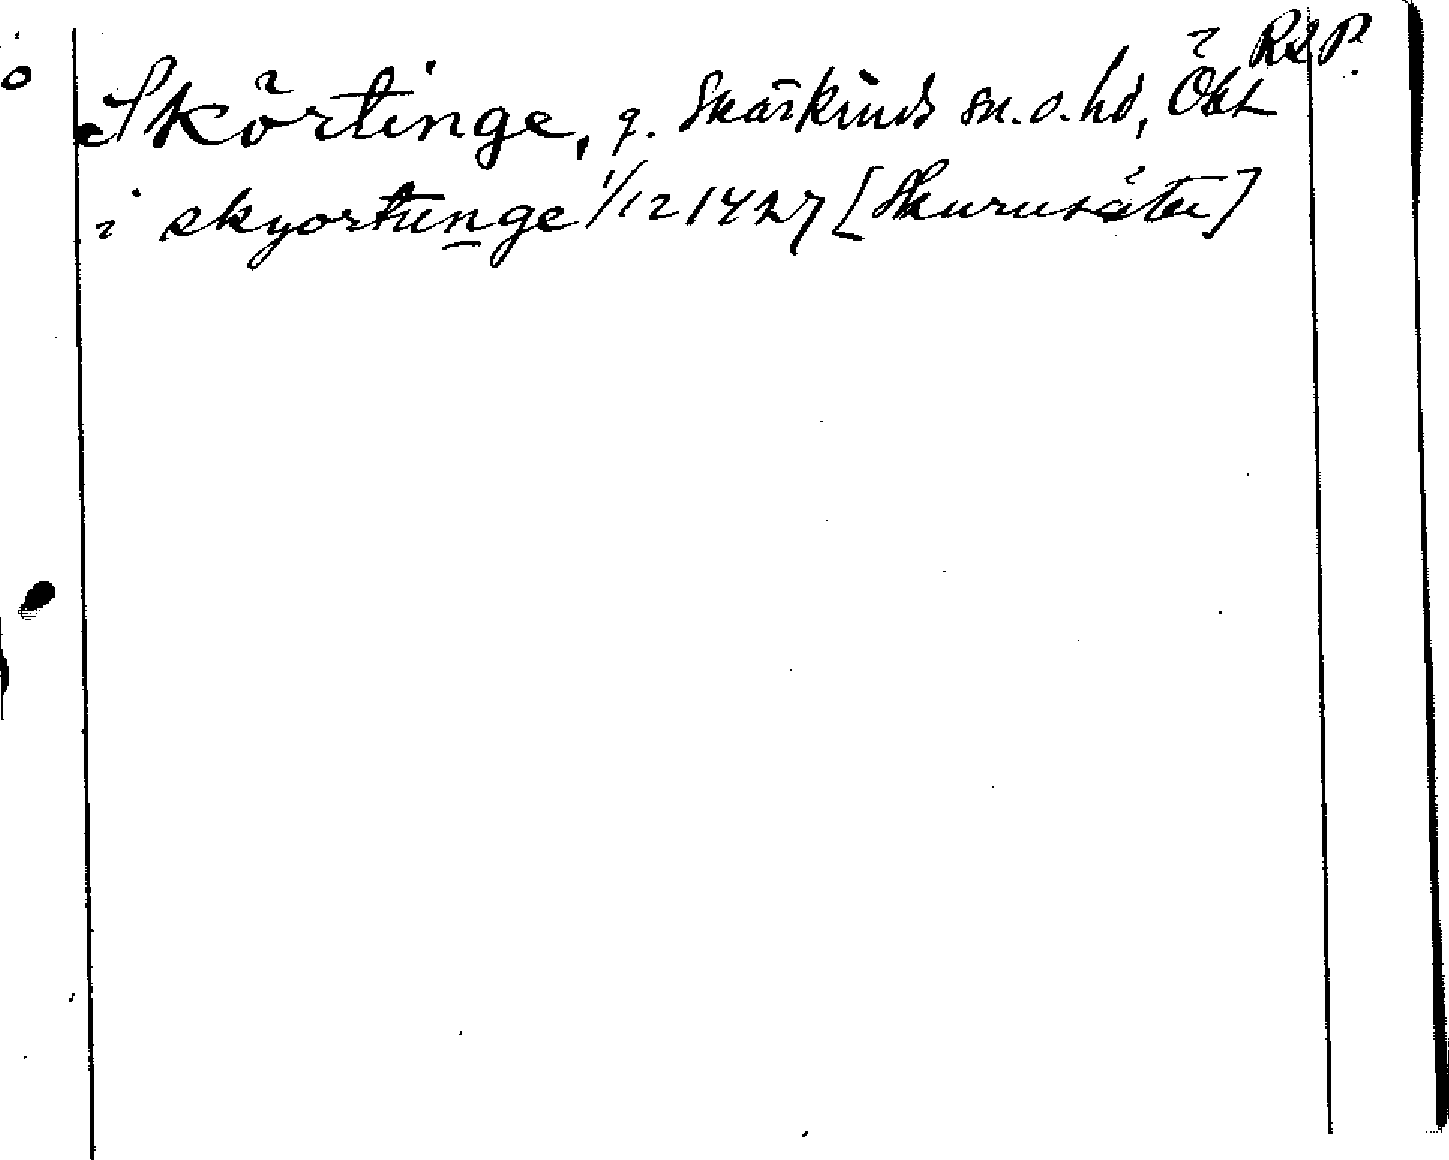 RAP.
Skörtinge, g. Skärkinds sn. o. hd, Ögl
i skyortunge 1/12 1427 [Skurusäter]